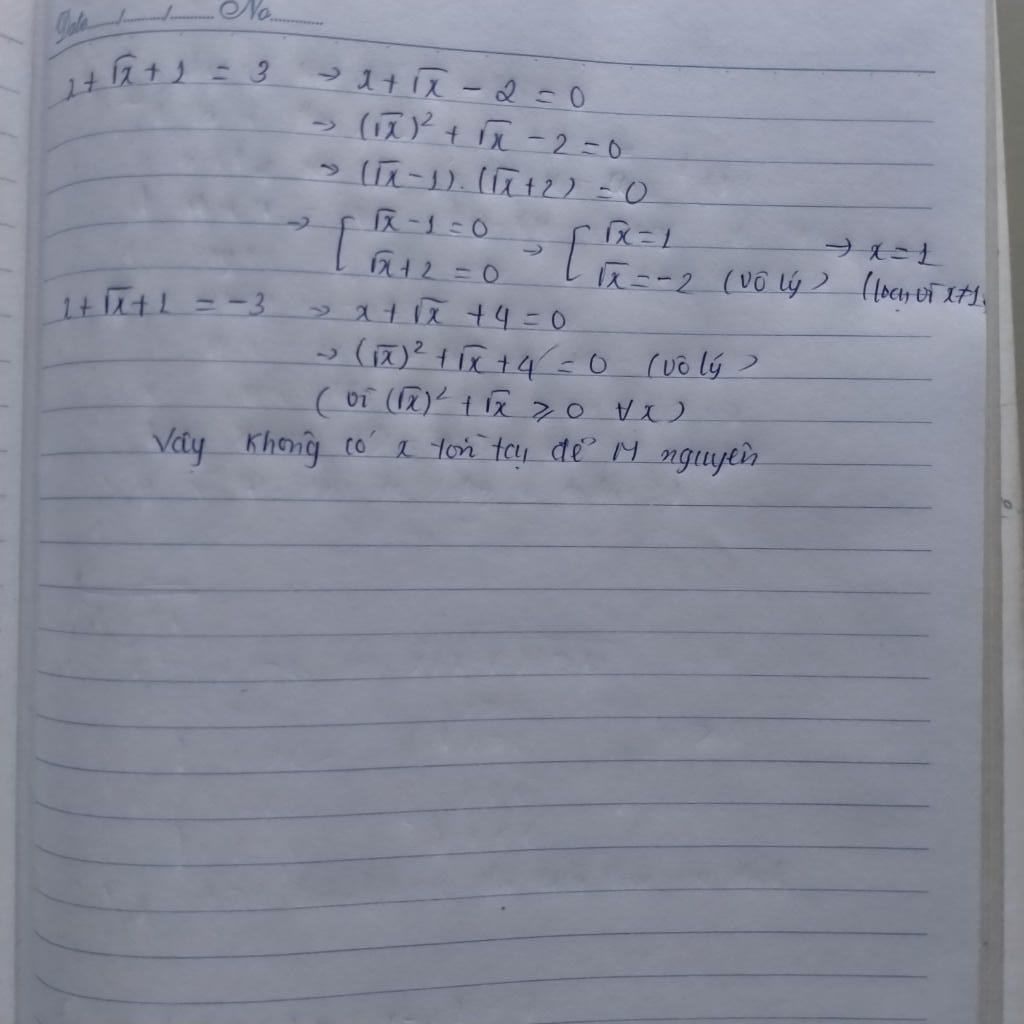 Date ..../....../........ No............
x + √x + 1 = 3 → x + √x - 2 = 0
→ (√x)² + √x - 2 = 0
→ (√x - 1).(√x + 2) = 0
→ [ √x - 1 = 0 → [ √x = 1 → x = 1
√x + 2 = 0 √x = -2 (vô lý) (loại vì x≠1)
x + √x + 1 = -3 → x + √x + 4 = 0
→ (√x)² + √x + 4 = 0 (vô lý)
(vì (√x)² + √x ≥ 0 ∀x)
Vậy không có x tồn tại để M nguyên